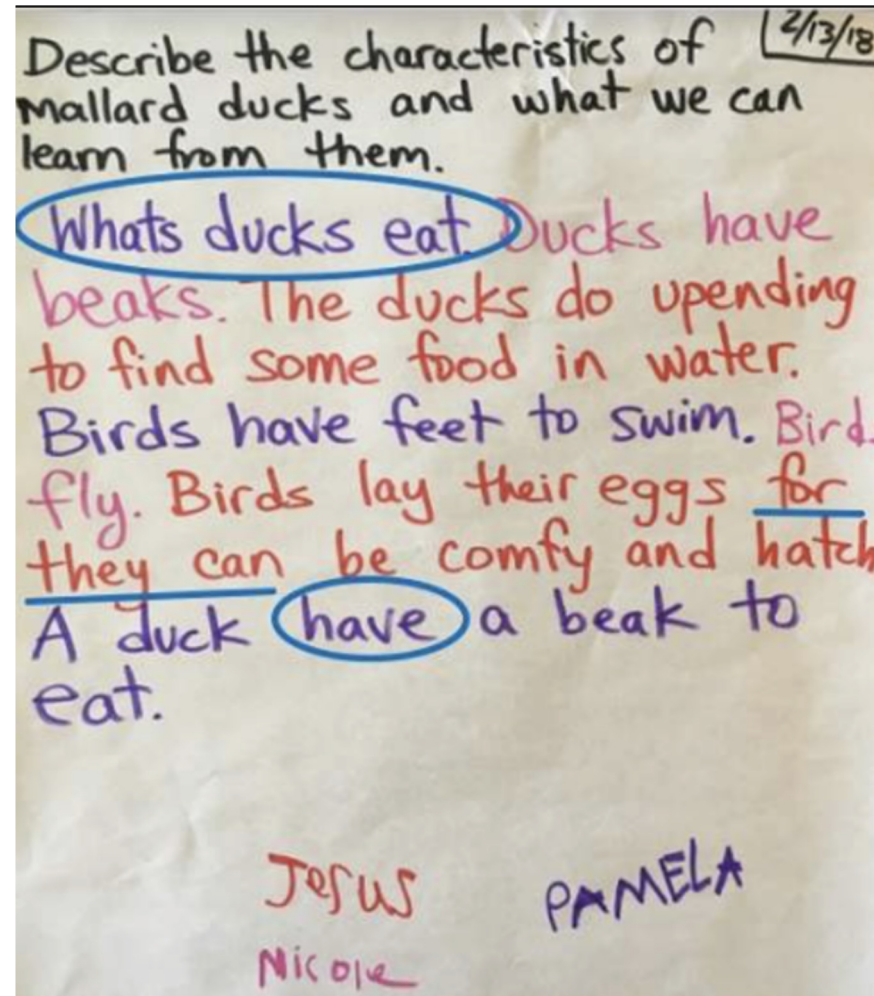 Describe the characteristics of 2/13/18
Mallard ducks and what we can
learn from them.
Whats ducks eat. Ducks have
beaks. The ducks do upending
to find some food in water.
Birds have feet to swim. Bird
fly. Birds lay their eggs for
they can be comfy and hatch
A duck have a beak to
eat.
Jesus PAMELA
Nicole